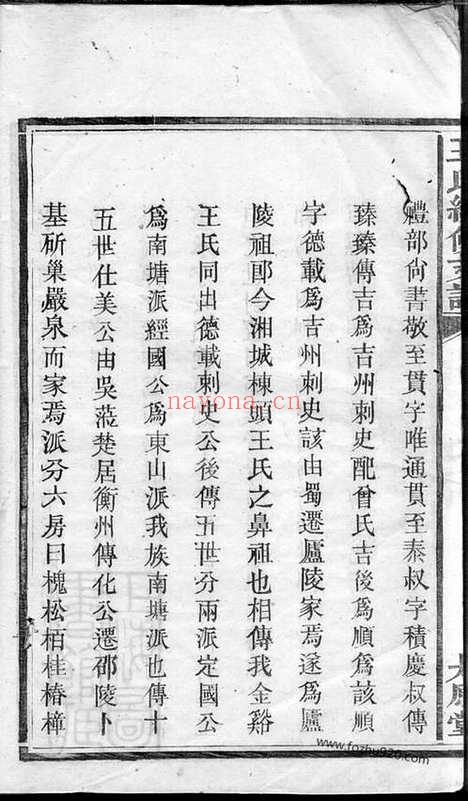 王氏續修支譜
禮部尙書敬至貫字唯通貫至泰叔字積慶叔傳
臻臻傳吉爲吉州刺史配曾氏吉後爲順爲該順
字德載爲吉州刺史該由蜀遷廬陵家焉遂爲廬
陵祖郎今湘城棟頭王氏之鼻祖也相傳我金谿
王氏同出德載刺史公後傳五世分兩派定國公
爲南塘派經國公爲東山派我族南塘派也傳十
五世仕美公由吳蒞楚居衡州傳化公遷邵陵卜
基斫巢嚴泉而家焉派分六房曰槐松栢桂椿樟
nayona.cn
www.fozhy920.com